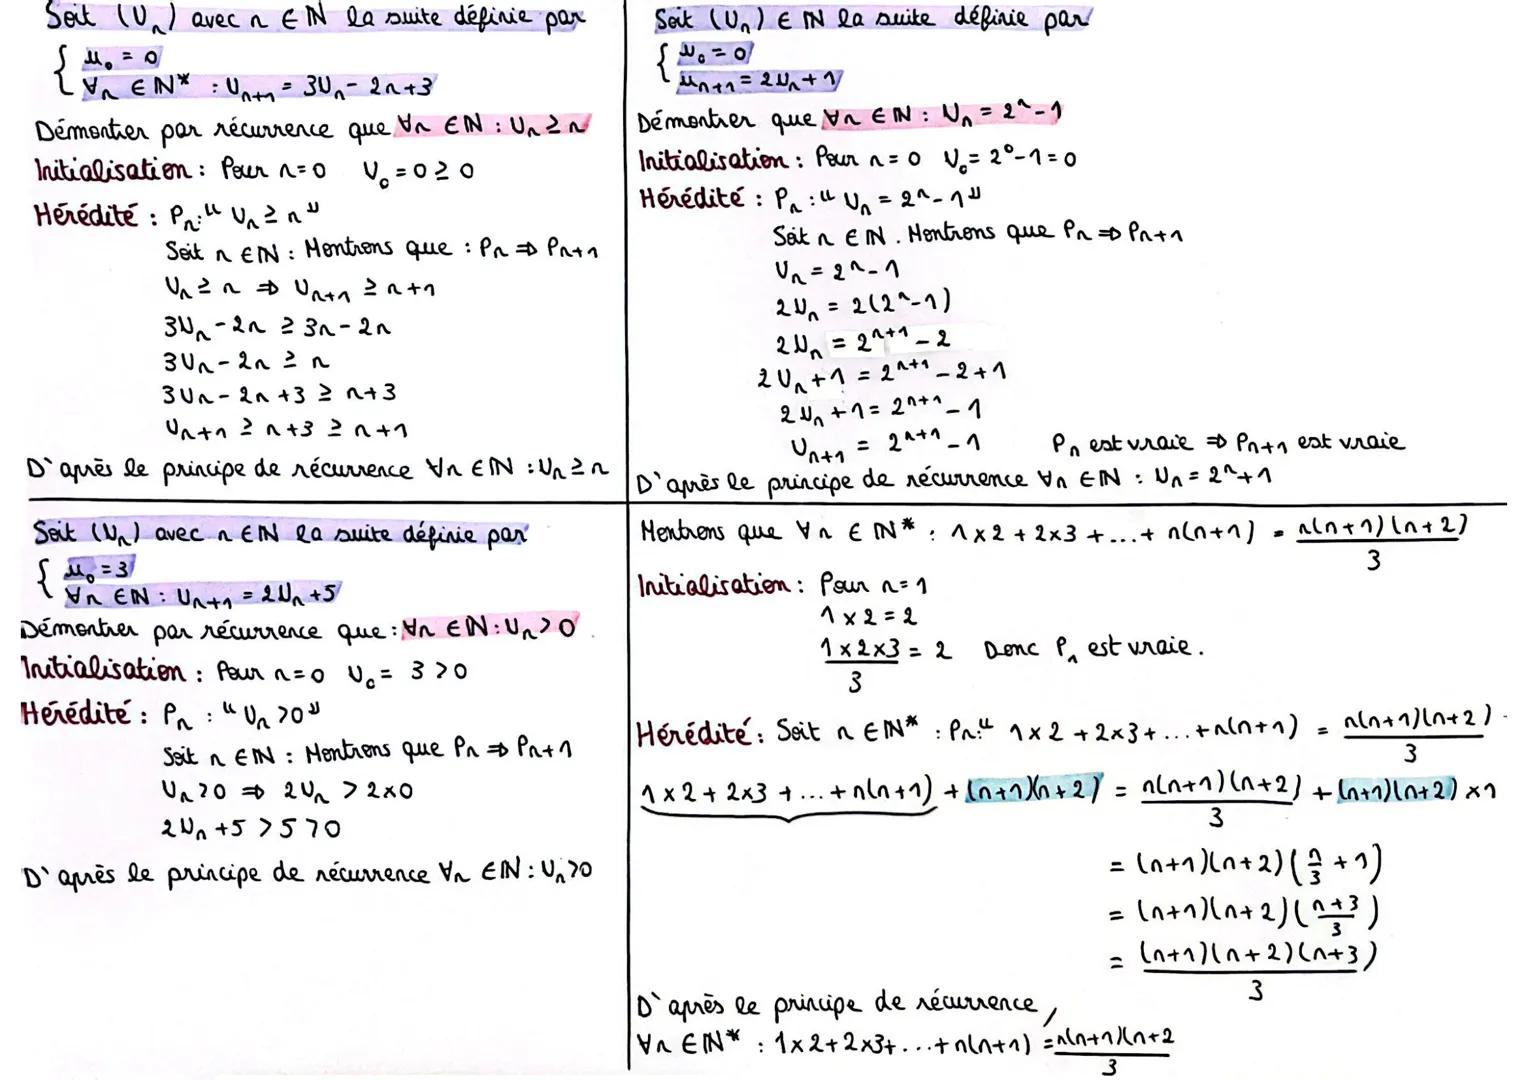 Soit (Uₙ) avec n ∈ ℕ la suite définie par
{ u₀ = 0
∀n ∈ ℕ* : Uₙ₊₁ = 3Uₙ - 2n + 3
Démontrer par récurrence que ∀n ∈ ℕ : Uₙ ≥ n
Initialisation : Pour n = 0 U₀ = 0 ≥ 0
Hérédité : Pₙ : " Uₙ ≥ n "
Soit n ∈ ℕ : Montrons que : Pn ⇒ Pn+1
Uₙ ≥ n ⇒ Uₙ₊₁ ≥ n+1
3Uₙ - 2n ≥ 3n - 2n
3Uₙ - 2n ≥ n
3Uₙ - 2n + 3 ≥ n+3
Uₙ₊₁ ≥ n+3 ≥ n+1
D'après le principe de récurrence ∀n ∈ ℕ : Uₙ ≥ n
Soit (Uₙ) ∈ ℕ la suite définie par
{ U₀ = 0
uₙ₊₁ = 2Uₙ + 1
Démontrer que ∀n ∈ ℕ : Uₙ = 2ⁿ - 1
Initialisation : Pour n = 0 U₀ = 2⁰ - 1 = 0
Hérédité : Pₙ : " Uₙ = 2ⁿ - 1 "
Soit n ∈ ℕ. Montrons que Pn ⇒ Pn+1
Uₙ = 2ⁿ - 1
2Uₙ = 2(2ⁿ - 1)
2Uₙ = 2ⁿ⁺¹ - 2
2Uₙ + 1 = 2ⁿ⁺¹ - 2 + 1
2Uₙ + 1 = 2ⁿ⁺¹ - 1
Uₙ₊₁ = 2ⁿ⁺¹ - 1 Pₙ est vraie ⇒ Pn+1 est vraie
D'après le principe de récurrence ∀n ∈ ℕ : Uₙ = 2ⁿ + 1
Soit (Uₙ) avec n ∈ ℕ la suite définie par
{ u₀ = 3
∀n ∈ ℕ : Uₙ₊₁ = 2Uₙ + 5
Démontrer par récurrence que : ∀n ∈ ℕ : Uₙ > 0
Initialisation : Pour n = 0 U₀ = 3 > 0
Hérédité : Pₙ : " Uₙ > 0 "
Soit n ∈ ℕ : Montrons que Pn ⇒ Pn+1
Uₙ > 0 ⇒ 2Uₙ > 2×0
2Uₙ + 5 > 5 > 0
D'après le principe de récurrence ∀n ∈ ℕ : Uₙ > 0
Montrons que ∀n ∈ ℕ* : 1×2 + 2×3 + ... + n(n+1) = n(n+1)(n+2)/3
Initialisation : Pour n = 1
1×2 = 2
1×2×3/3 = 2 Donc Pₙ est vraie.
Hérédité : Soit n ∈ ℕ* : Pn : " 1×2 + 2×3 + ... + n(n+1) = n(n+1)(n+2)/3 .
1×2 + 2×3 + ... + n(n+1) + (n+1)(n+2) = n(n+1)(n+2)/3 + (n+1)(n+2) ×1
= (n+1)(n+2)(n/3 + 1)
= (n+1)(n+2)((n+3)/3)
= (n+1)(n+2)(n+3)/3
D'après le principe de récurrence,
∀n ∈ ℕ* : 1×2 + 2×3 + ... + n(n+1) = n(n+1)(n+2/3